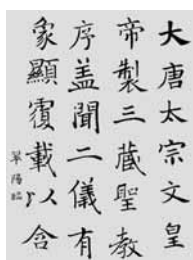 大唐太宗文皇
帝製三藏聖教
序盖聞二儀有
象顯覆載以含
翠陽臨